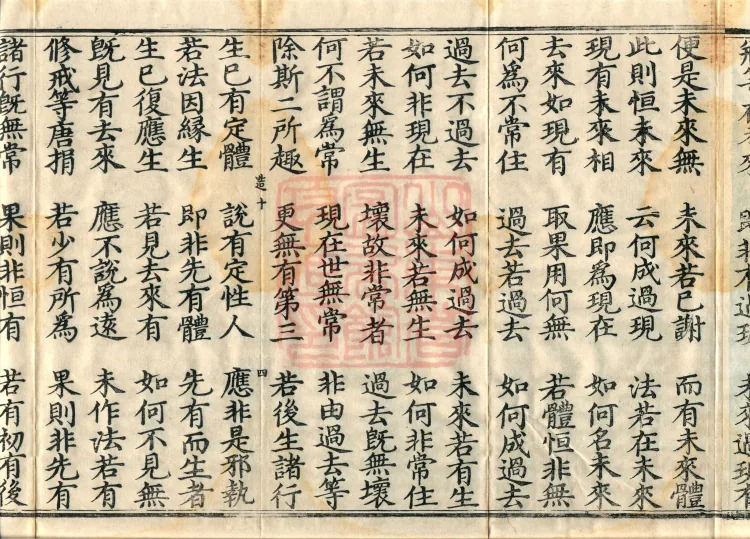 便是未來無　未來若已謝　而有未來體
此則恒未來　云何成過現　法若在未來
現有未來相　應即爲現在　如何名未來
去來如現有　取果用何無　若體恒非無
何爲不常住　過去若過去　如何成過去
過去不過去　如何成過去　未來若有生
如何非現在　未來若無生　如何非常住
若未來無生　壞故非常者　過去旣無壞
何不謂爲常　現在世無常　非由過去等
除斯二所趣　更無有第三　若後生諸行
造十　四
生已有定體　說有定性人　應非是邪執
若法因緣生　即非先有體　先有而生者
生已復應生　若見去來有　如何不見無
旣見有去來　應不說爲遠　未作法若有
修戒等唐捐　若少有所爲　果則非先有
諸行旣無常　果則非恒有　若有初有後